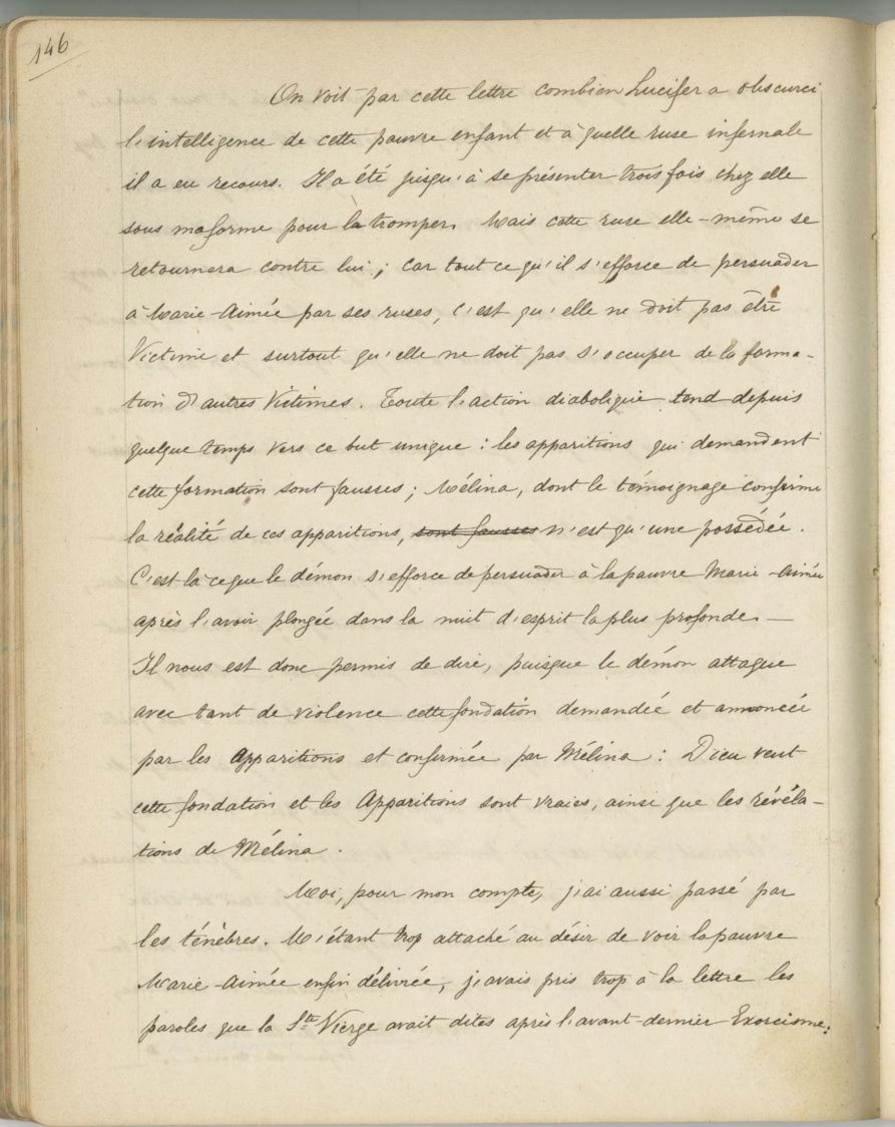 146
On voit par cette lettre combien Lucifer a obscurci
l'intelligence de cette pauvre enfant et à quelle ruse infernale
il a eu recours. Il a été jusqu'à se présenter trois fois chez elle
sous ma forme pour la tromper. Mais cette ruse elle-même se
retournera contre lui ; car tout ce qu'il s'efforce de persuader
à Marie-Aimée par ses ruses, c'est qu'elle ne doit pas être
Victime et surtout qu'elle ne doit pas s'occuper de la forma-
tion d'autres Victimes. Toute l'action diabolique tend depuis
quelque temps vers ce but unique : les apparitions qui demandent
cette formation sont fausses ; Mélina, dont le témoignage confirme
la réalité de ces apparitions, sont fausses n'est qu'une possédée.
C'est là ce que le démon s'efforce de persuader à la pauvre Marie-Aimée
après l'avoir plongée dans la nuit d'esprit la plus profonde. —
Il nous est donc permis de dire, puisque le démon attaque
avec tant de violence cette fondation demandée et annoncée
par les Apparitions et confirmée par Mélina : Dieu veut
cette fondation et les Apparitions sont vraies, ainsi que les révéla-
tions de Mélina.
Moi, pour mon compte, j'ai aussi passé par
les ténèbres. M'étant trop attaché au désir de voir la pauvre
Marie-Aimée enfin délivrée, j'avais pris trop à la lettre les
paroles que la Ste Vierge avait dites après l'avant-dernier Exorcisme: